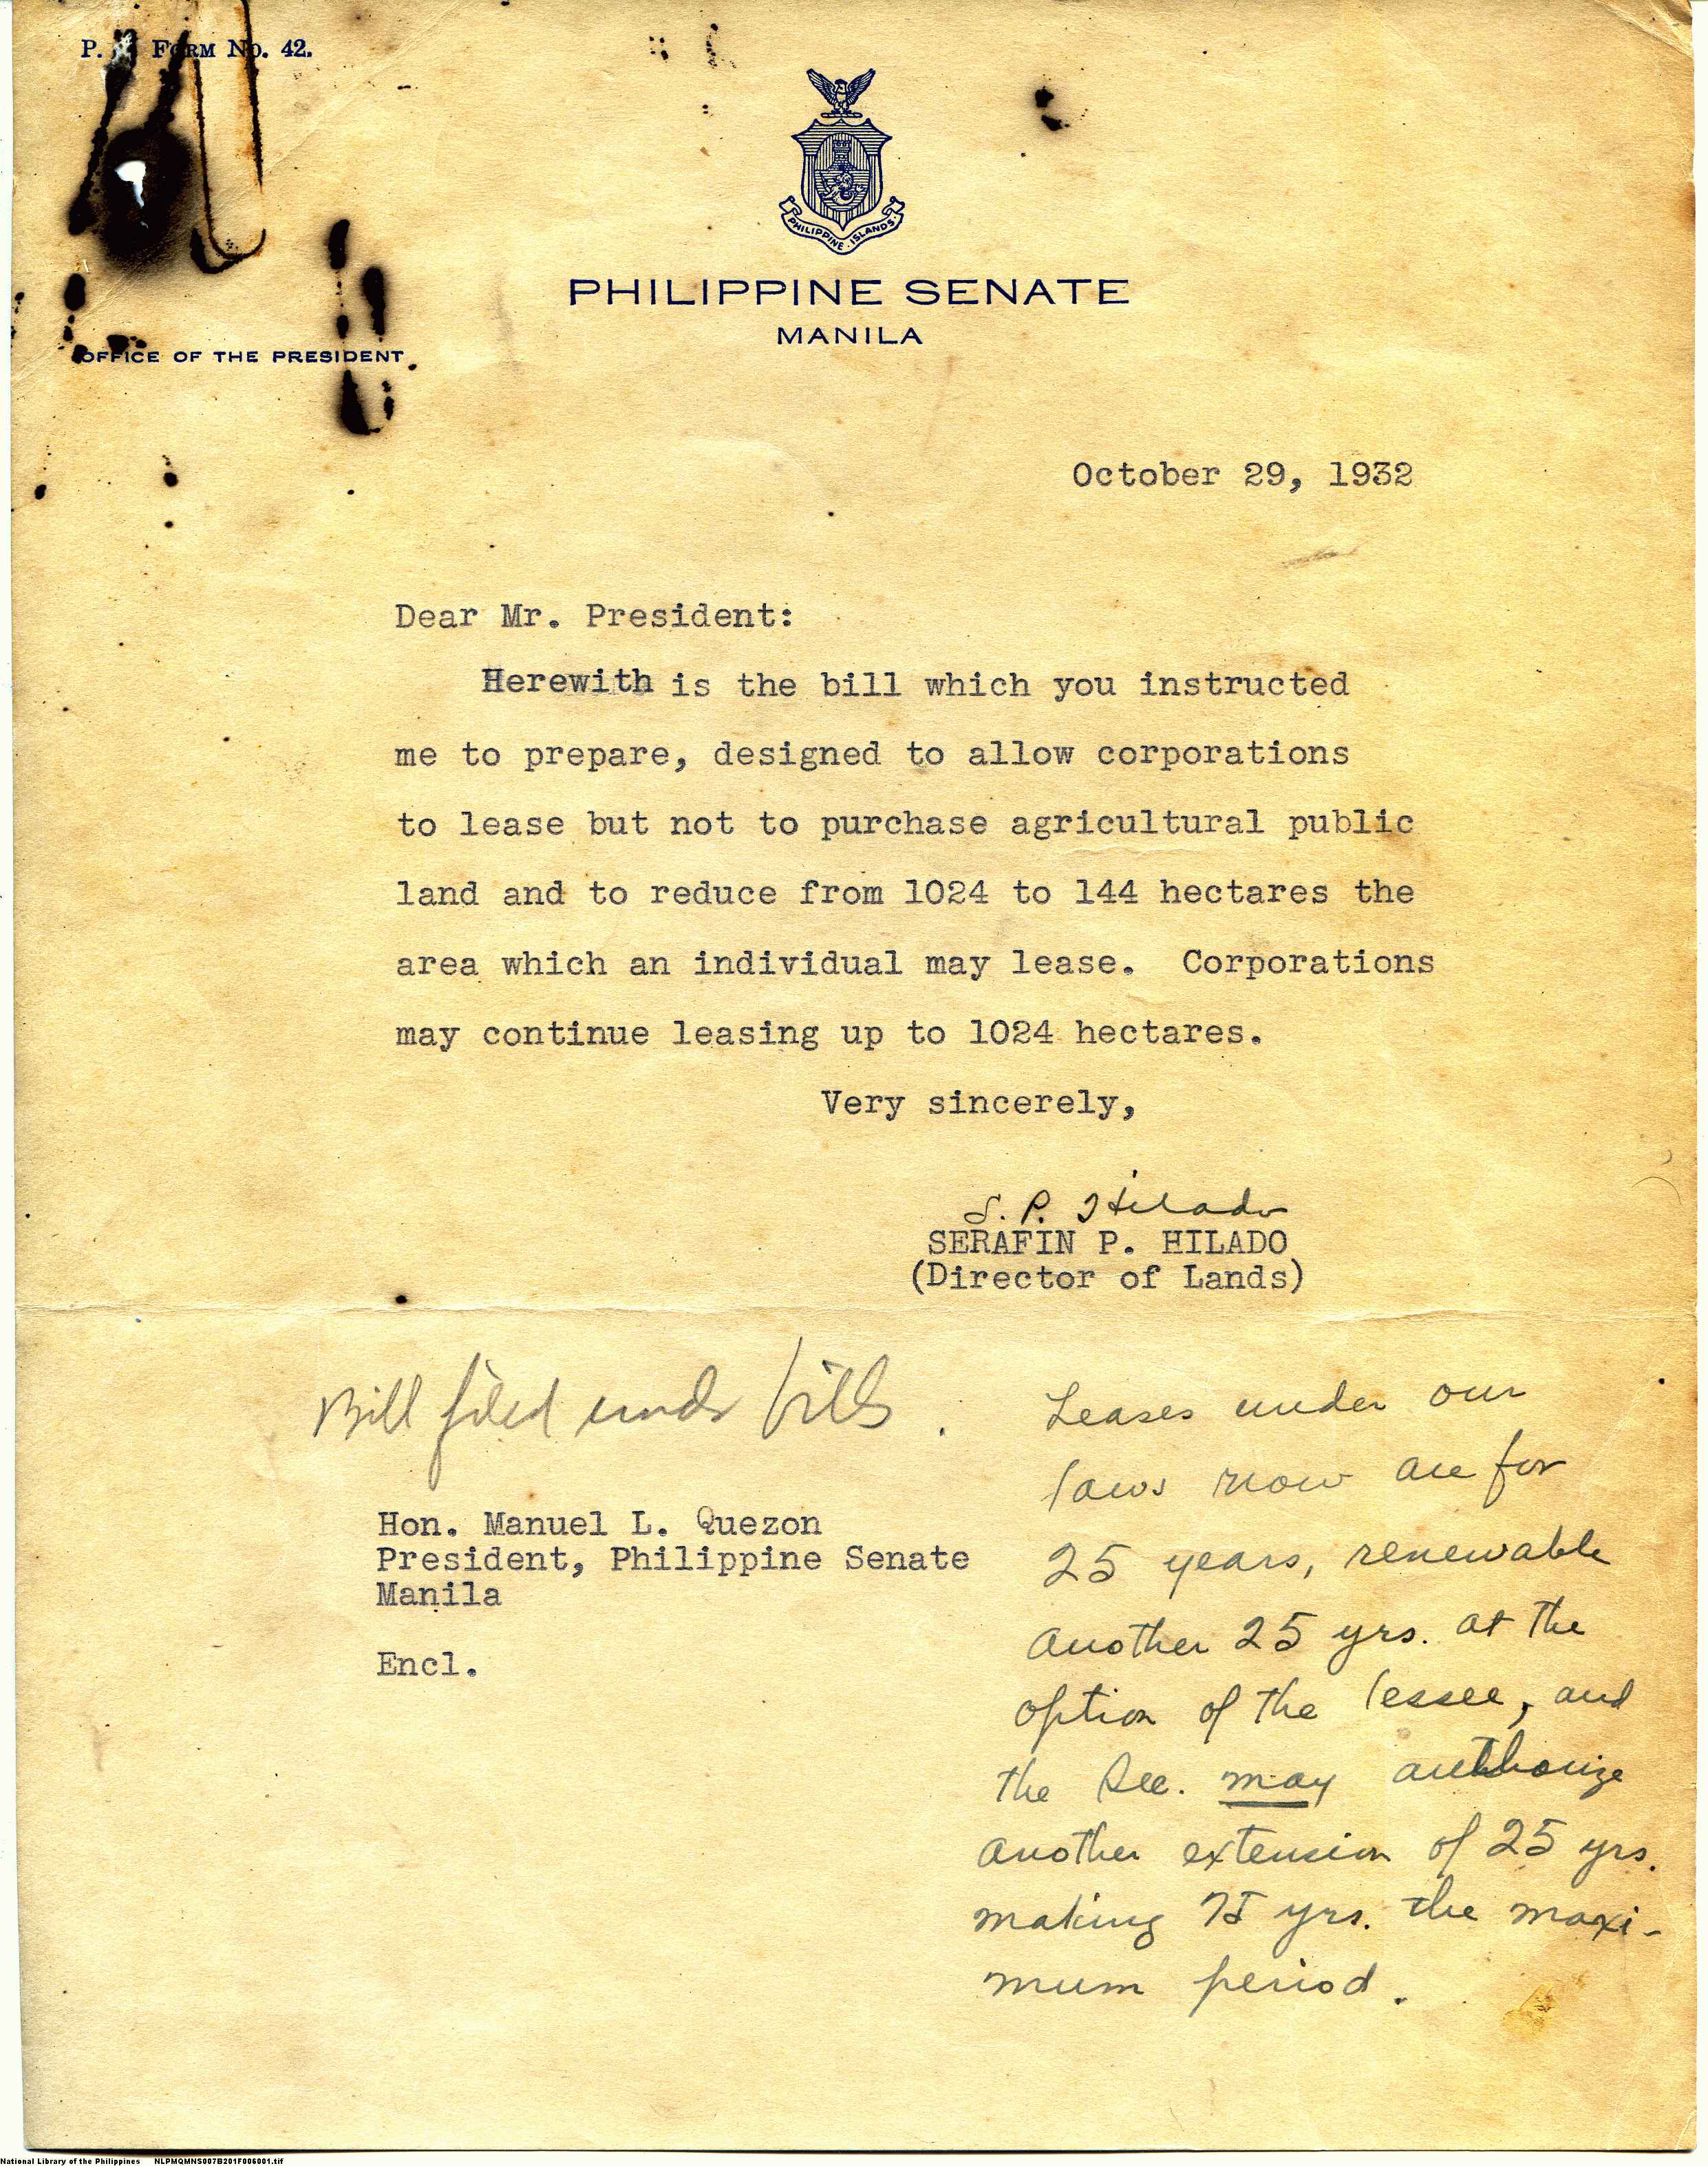 P. FORM NO. 42.
PHILIPPINE ISLANDS
PHILIPPINE SENATE
MANILA
OFFICE OF THE PRESIDENT
October 29, 1932
Dear Mr. President:
Herewith is the bill which you instructed
me to prepare, designed to allow corporations
to lease but not to purchase agricultural public
land and to reduce from 1024 to 144 hectares the
area which an individual may lease. Corporations
may continue leasing up to 1024 hectares.
Very sincerely,
S. P. Hilado
SERAFIN P. HILADO
(Director of Lands)
Bill filed under bills.
Hon. Manuel L. Quezon
President, Philippine Senate
Manila
Encl.
Leases under our
laws now are for
25 years, renewable
another 25 yrs. at the
option of the lessee, and
the Sec. may authorize
another extension of 25 yrs.
making 75 yrs. the maxi-
mum period.
National Library of the Philippines NLPMQMNS007B201F006001.tif